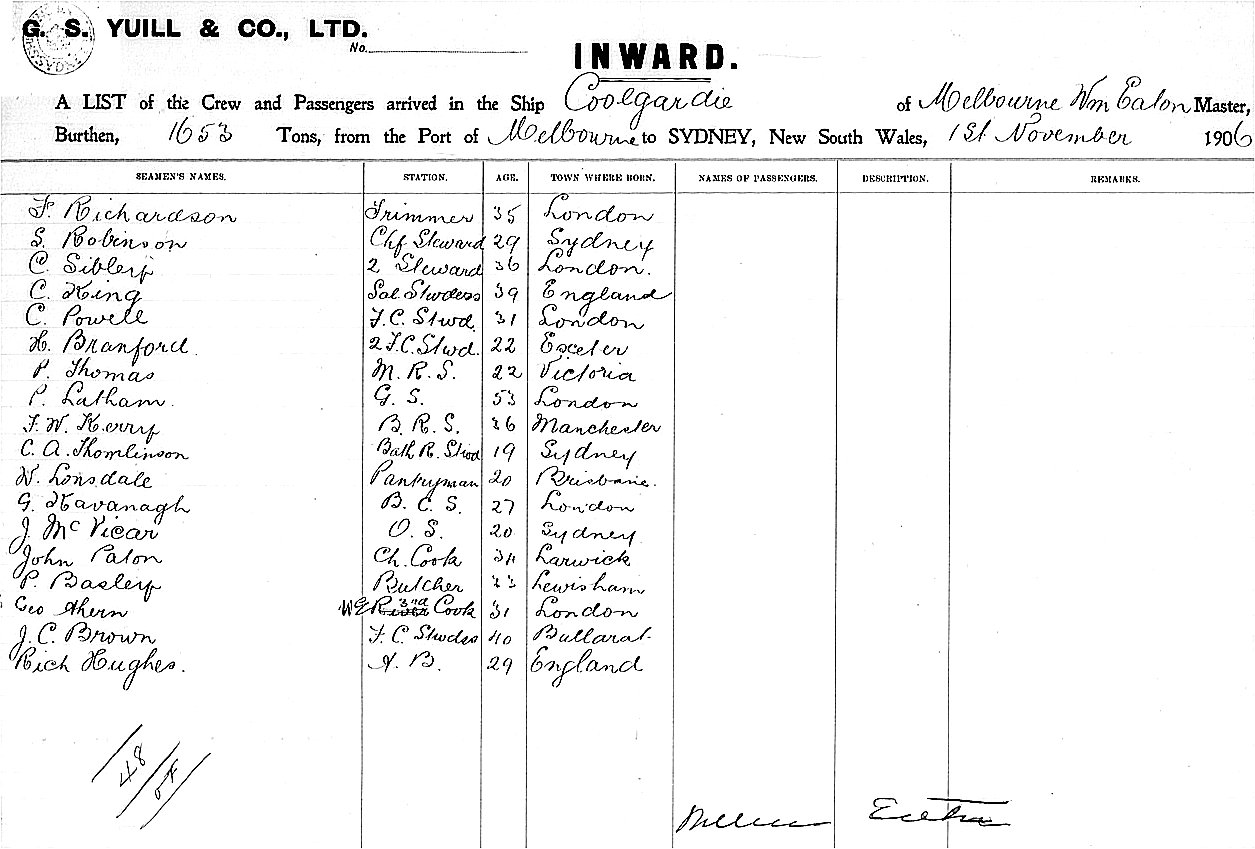 G. S. YUILL & CO., LTD.
No.
INWARD.
A LIST of the Crew and Passengers arrived in the Ship Coolgardie of Melbourne Wm Eaton Master,
Burthen, 1653 Tons, from the Port of Melbourne to SYDNEY, New South Wales, 1st November 1906
SEAMEN'S NAMES. STATION. AGE. TOWN WHERE BORN. NAMES OF PASSENGERS. DESCRIPTION. REMARKS.
F. Richardson Trimmer 35 London
S. Robinson Chf Steward 29 Sydney
C. Sibley 2 Steward 36 London.
C. King Sal. Stwdess 39 England
C. Powell F.C. Stwd. 31 London
H. Branford. 2 F.C. Stwd. 22 Exeter
P. Thomas M. R. S. 22 Victoria
P. Latham. G. S. 53 London
F. W. Kerry B. R. S. 36 Manchester
C. A. Thomlinson Bath R. Stwd 19 Sydney
W. Lonsdale Pantryman 20 Brisbane.
G. Kavanagh B. C. S. 27 London
J. Mc Vicar O. S. 20 Sydney
John Paton Ch. Cook Larwick
P. Basley Butcher 33 Lewisham
Geo Ahern 3rd Cook 31 London
J. C. Brown F. C. Stwdss 40 Ballarat
Rich Hughes. A. B. 29 England
48